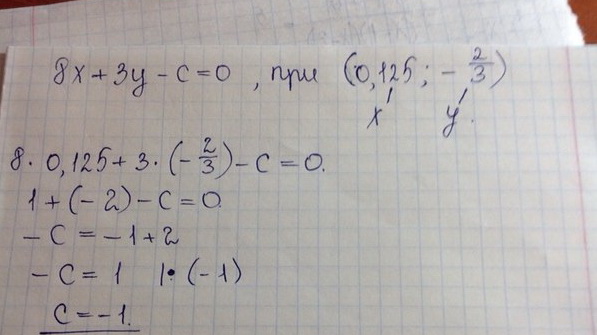 8x + 3y - c = 0 , при (0,125 ; - 2/3)
x y.
8 · 0,125 + 3 · (- 2/3) - c = 0.
1 + (- 2) - c = 0.
- c = -1 + 2
- c = 1 | · (-1)
c = -1.